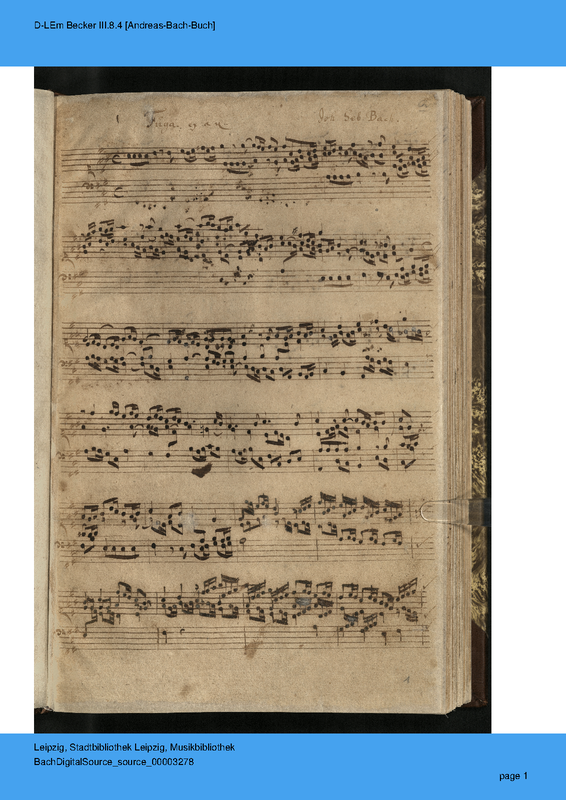 D-LEm Becker III.8.4 [Andreas-Bach-Buch]
Fuga. ex a moll
Joh. Seb. Bach.
Leipzig, Stadtbibliothek Leipzig, Musikbibliothek
BachDigitalSource_source_00003278
page 1